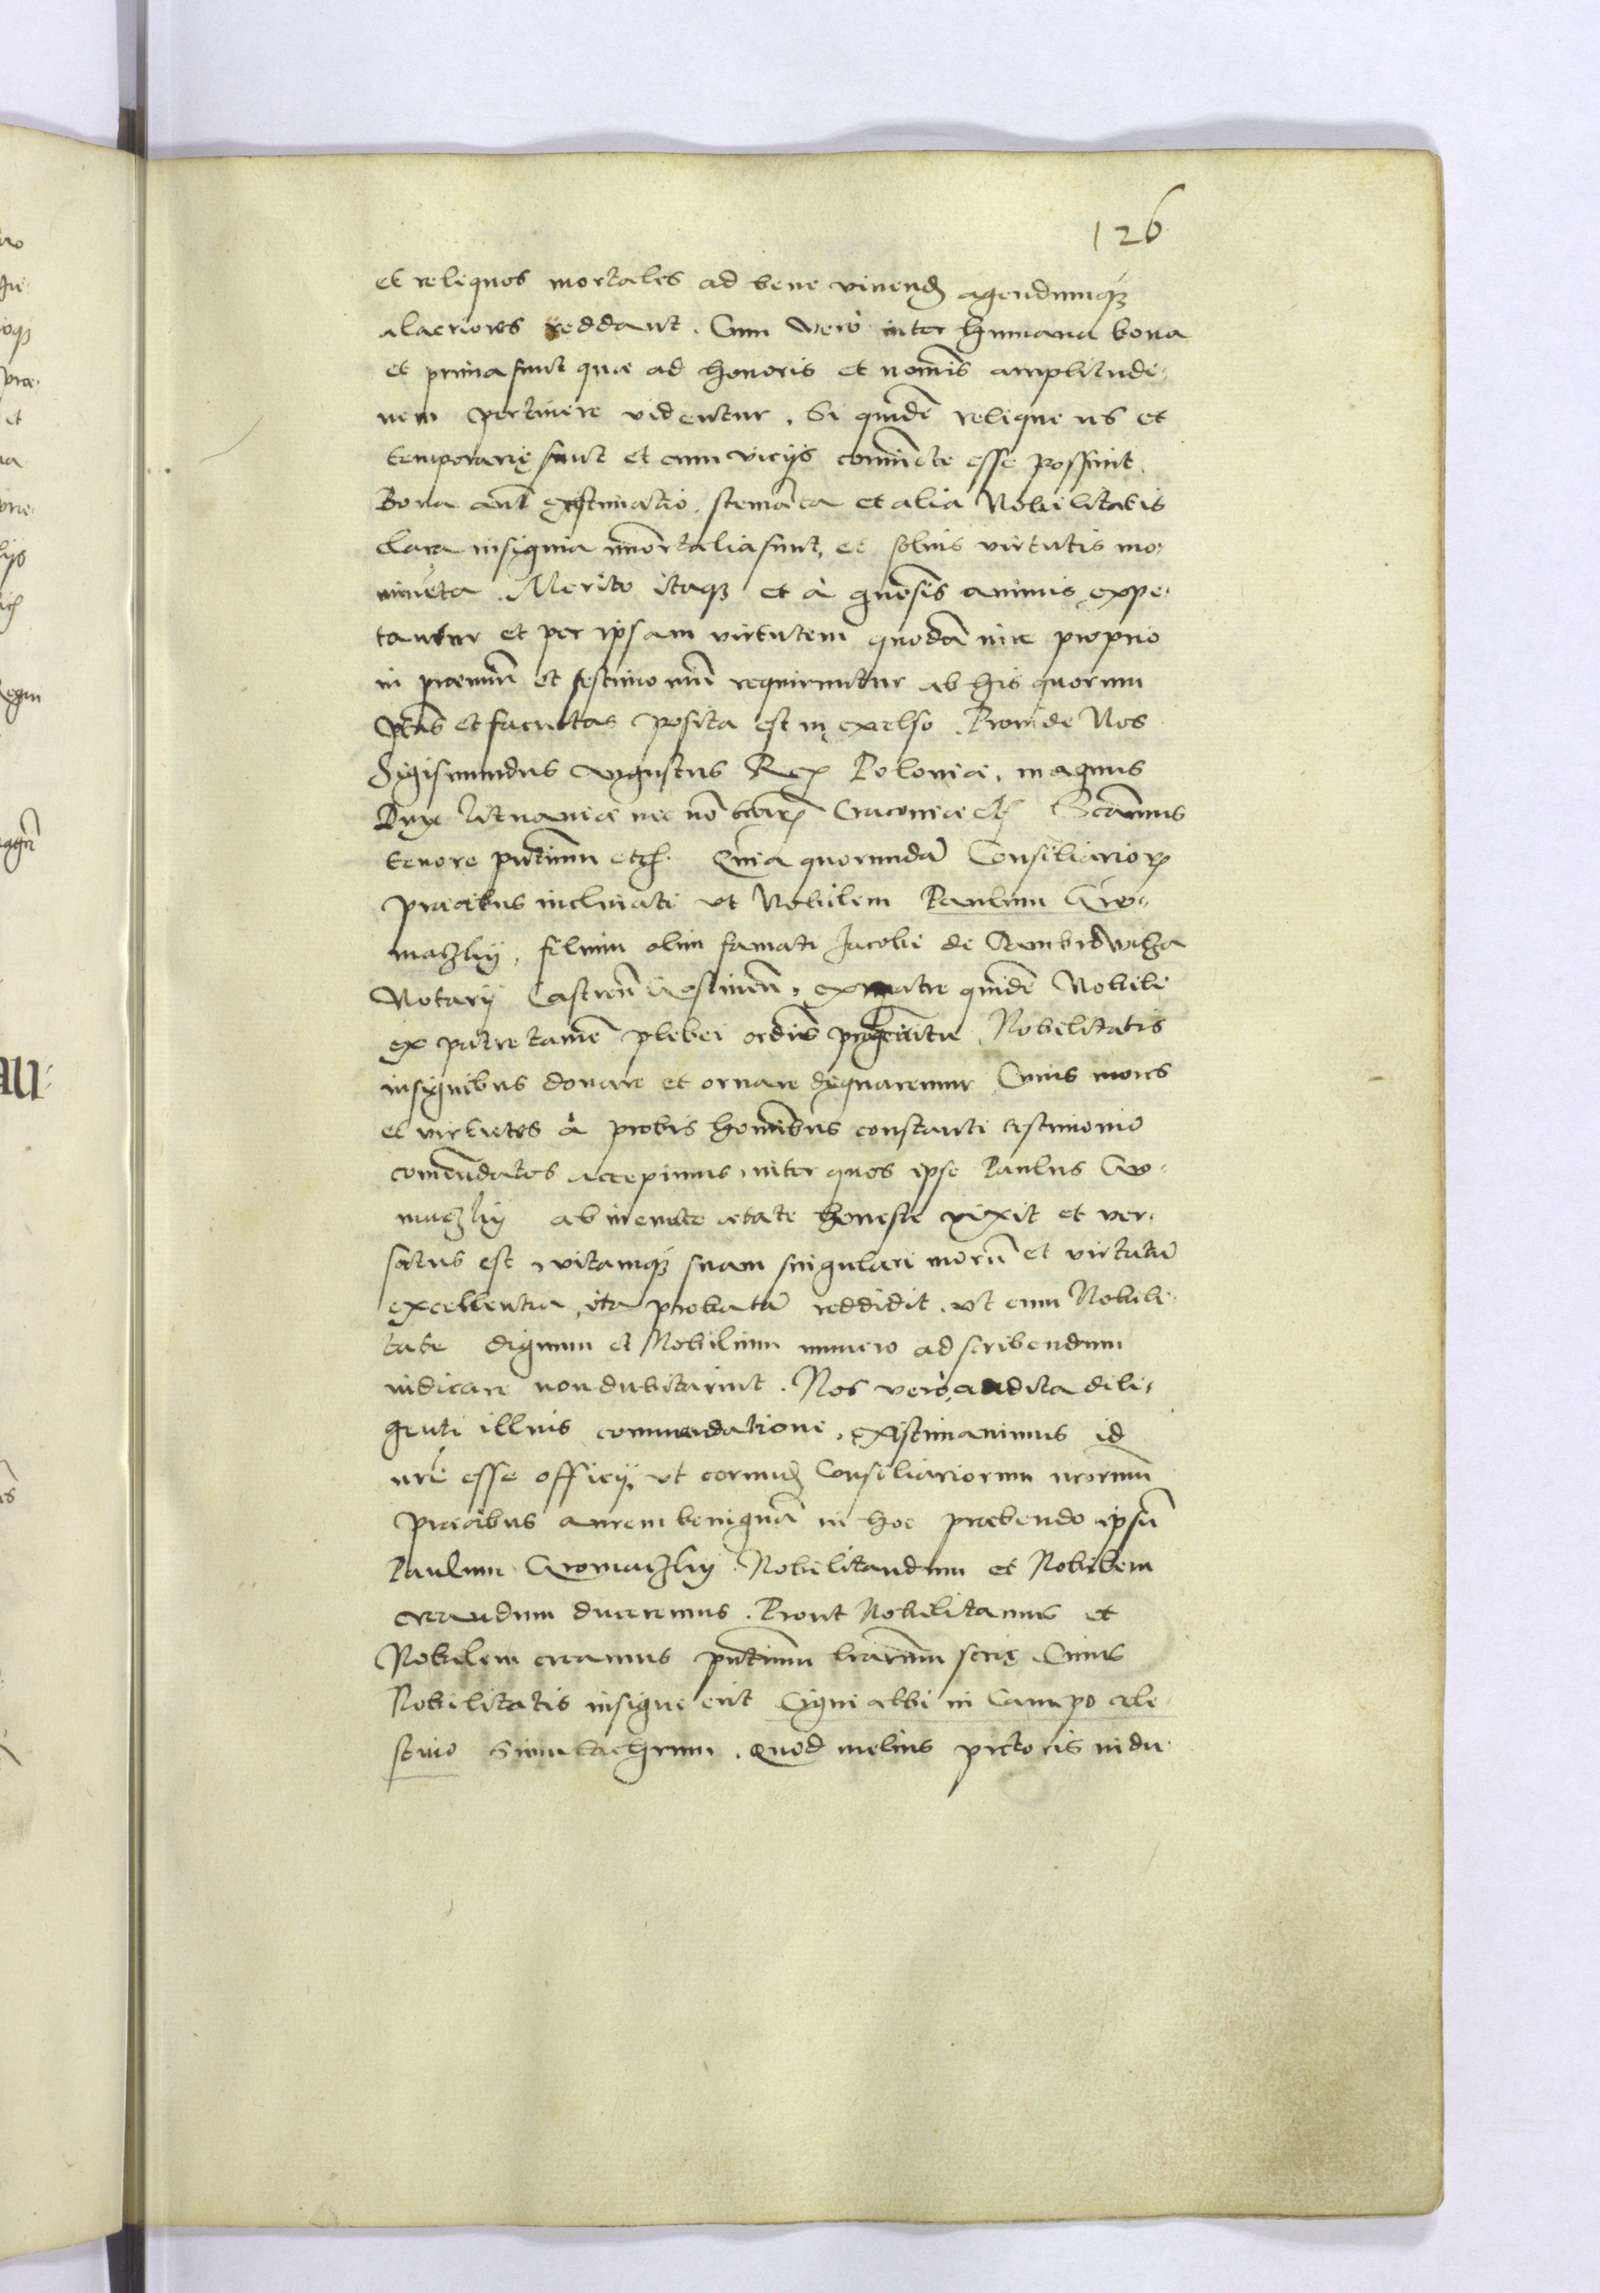 126
et reliquos mortales ad bene vivend agendumqꝫ
alacriores reddant. Cum vero inter humana bona
et prima sunt quæ ad honoris et nomīs amplitudi-
nem pertinere videntur. Si quidē relique res et
temporarię sunt et cum vicijs coniuncte esse possunt.
Bona aut existimatio, stemata et alia Nobilitatis
clara insignia imortalia sunt, et solius virtutis mo-
numēta. Merito itaqꝫ et à gnosis animis expe-
tantur et per ipsam virtutem quodā iure proprio
in præmiū et testimoniū requiruntur ab his quorum
ptās et facultas posita est in excelso. Proinde Nos
Sigismundus Augustus Rex Poloniæ, magnus
Dux Lituaniæ nec nō terrarꝝ Cracoviæ etc Scāmus
tenore pntium etc. Quia quorundā Consiliarioꝝ
præcibus inclinati ut Nobilem Paulum Gro-
maczky, filium olim famati Jacobi de
Notarij Castreñ, ex matre quidē Nobili
ex patre tamē plebei ordīs progenitū Nobilitatis
insignibus donare et ornare dignaremur Cuius mores
et virtutes à probis homībus constanti testimonio
comendatos accepimus inter quos ipse Paulus Gro-
maczky ab ineunte ætate honeste vixit et ver-
satus est vitamqꝫ suam singulari morū et virtutū
excellentia, ita probatā reddidit, ut eum Nobili-
tate dignum et Nobilium numero adscribendum
iudicare non dubitarint. Nos vero audita dili-
genti illius commendatione, existimavimus id
nrī esse officij, ut eorund Consiliariorum nrorum
præcibus aurem benignā in hoc præbendo ipsū
Paulum Gromaczky Nobilitandum et Nobilem
creandum duceremus. Prout Nobilitamus et
Nobilem creamus pntium lrarum serie Cuius
Nobilitatis insigne erit Cygni albi in Campo cele-
stino Simulachrum. Quod melius pictoris indu-